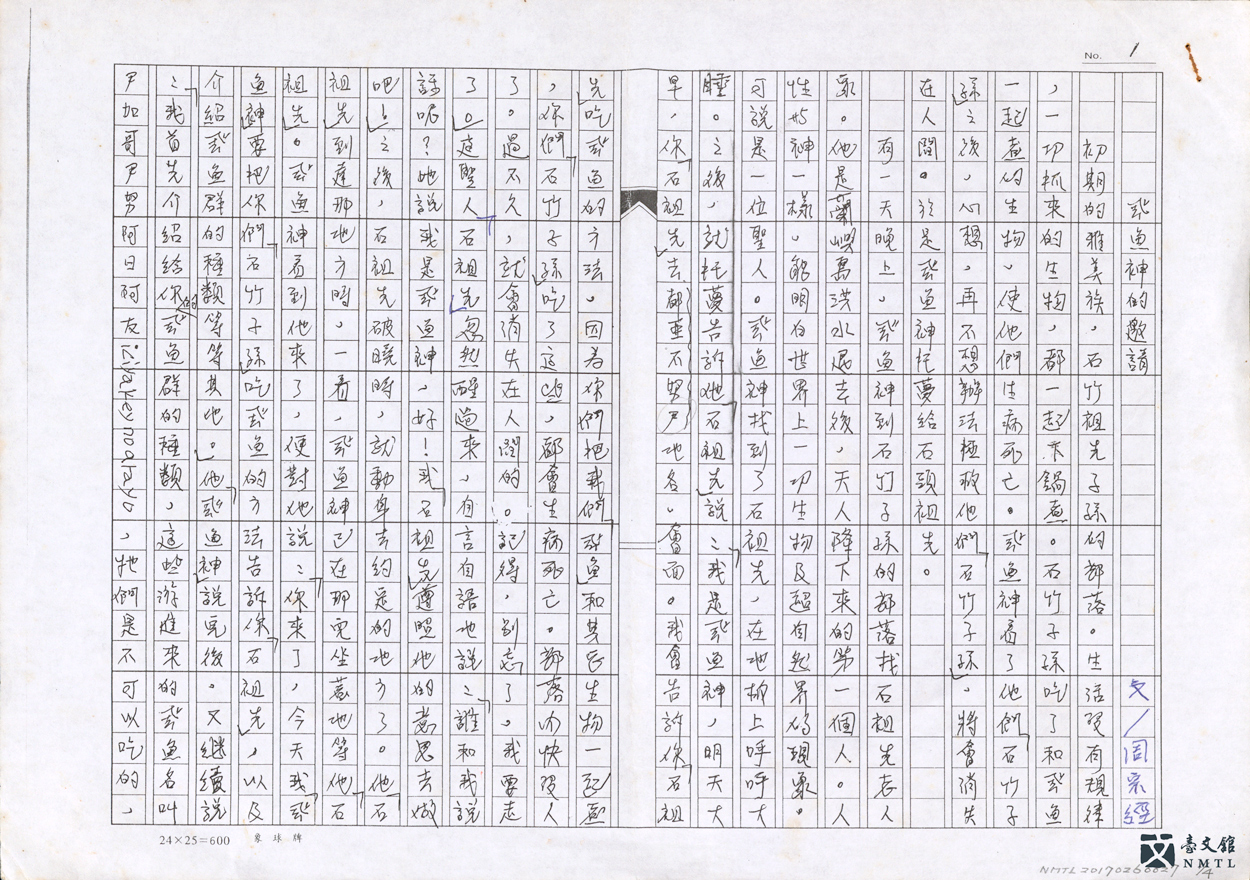 No. 1
飛魚神的邀請　文/周宗經
初期的雅美族，石竹祖先子孫的部落。生活沒有規律
，一切抓來的生物，都一起下鍋煮。石竹子孫吃了和飛魚
一起煮的生物，使他們生病死亡。飛魚神看了他們石竹子
孫之後，心想，再不想辦法極救他們石竹子孫，將會消失
在人間。於是飛魚神托夢給石頭祖先。
有一天晚上，飛魚神到石竹子孫的部落找石祖先老人
家。他是蘭嶼萬洪水退去後，天人降下來的第一個人。人
性與神一樣，能明白世界上一切生物及超自然界的現象。
可說是一位聖人。飛魚神找到了石祖先，在地柳上呼呼大
睡。之後，就托夢告訴她石祖先說：我是飛魚神，明天大
早，你石祖先去都亞不努尸地名。會面。我會告訴你石祖
先吃飛魚的方法。因為你們把我們飛魚和其它生物一起煮
，你們石竹子孫吃了這些，都會生病死亡。部落仂快沒人
了。過不久，就會消失在人間的。記得，別忘了，我要走
了。這聖人石祖先忽然醒過來，自言自語地說：誰和我說
話呢？她說我是飛魚神，好！我石祖先遵照她的意思去做
吧！之後，石祖先破曉時，就動身去約定的地方了。他石
祖先到達那地方時，一看，飛魚神已在那兒坐著地等他石
祖先。飛魚神看到他來了，便對他說：你來了，今天我飛
魚神要把你們石竹子孫吃飛魚的方法告訴你石祖先，以及
介紹飛魚群的種類等等其他。他飛魚神說完後。又繼續說
：我首先介紹給你的飛魚群的種類，這些游進來的飛魚名叫
尸加哥尸努阿日阿友izivakeynoarayo，牠們是不可以吃的，
24×25=600　象球牌
臺文館
NMTL
NMTL20190260027 1/4